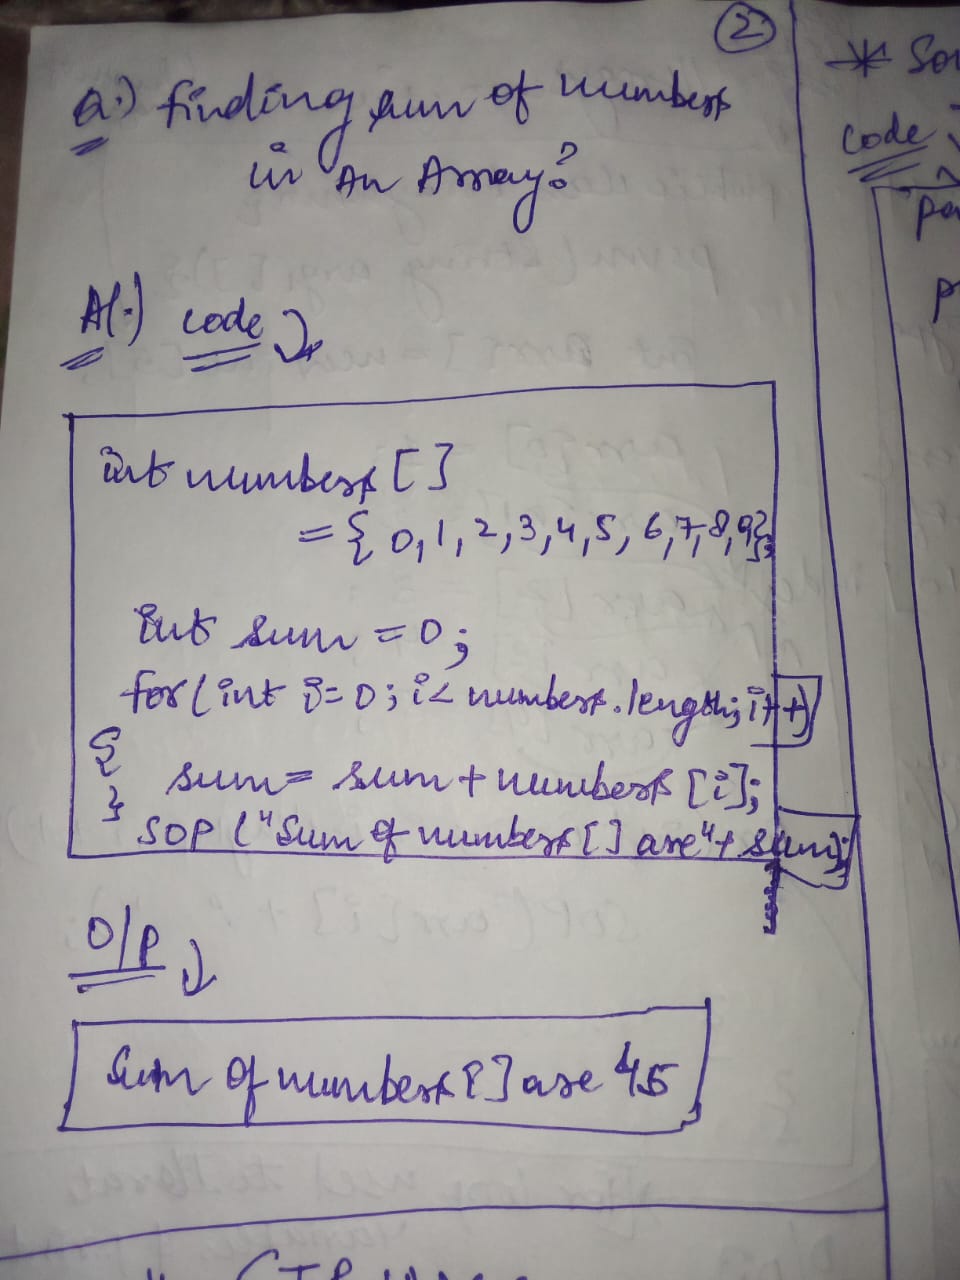 2
Q.) finding sum of numbers
in An Array?
A(.) code
int numbers []
= { 0,1,2,3,4,5,6,7,8,9};
int sum = 0;
for(int i=0; i< numbers.length; i++)
{
sum = sum + numbers [i];
}
SOP ("Sum of numbers[] are"+ sum);
O/P
Sum of numbers[] are 45
* 
code